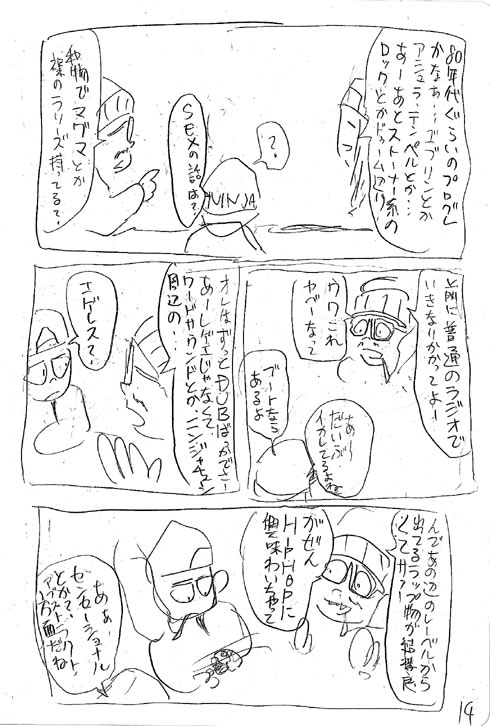 80年代ぐらいのプログレ
かなぁ…ズブリンとか
アシュラ・テンペルとか…
あーあとストーナー系の
ロックとかドゥームメタリ
?
NINJA
SEXの話は?
和物でマグマとか
裸のラリーズ持ってる?
前に普通のラジオで
いきなりかかってよー
ウワこれ
ヤベーなって
あー
だいぶ
イカレてるよね
ブートなら
あるよ
オレはずっとDUBばっかでさー
あーレゲエじゃなくて
ワードサウンドとか、ニンジャチューン
周辺の…
エゲレス?
んであの辺のレーベルから
出てるラップ物が結構良
くてサァー
がぜん
HIPHOPに
興味わいちゃって
あぁ、
センセーショナル
とかアンチ
方面だね
14